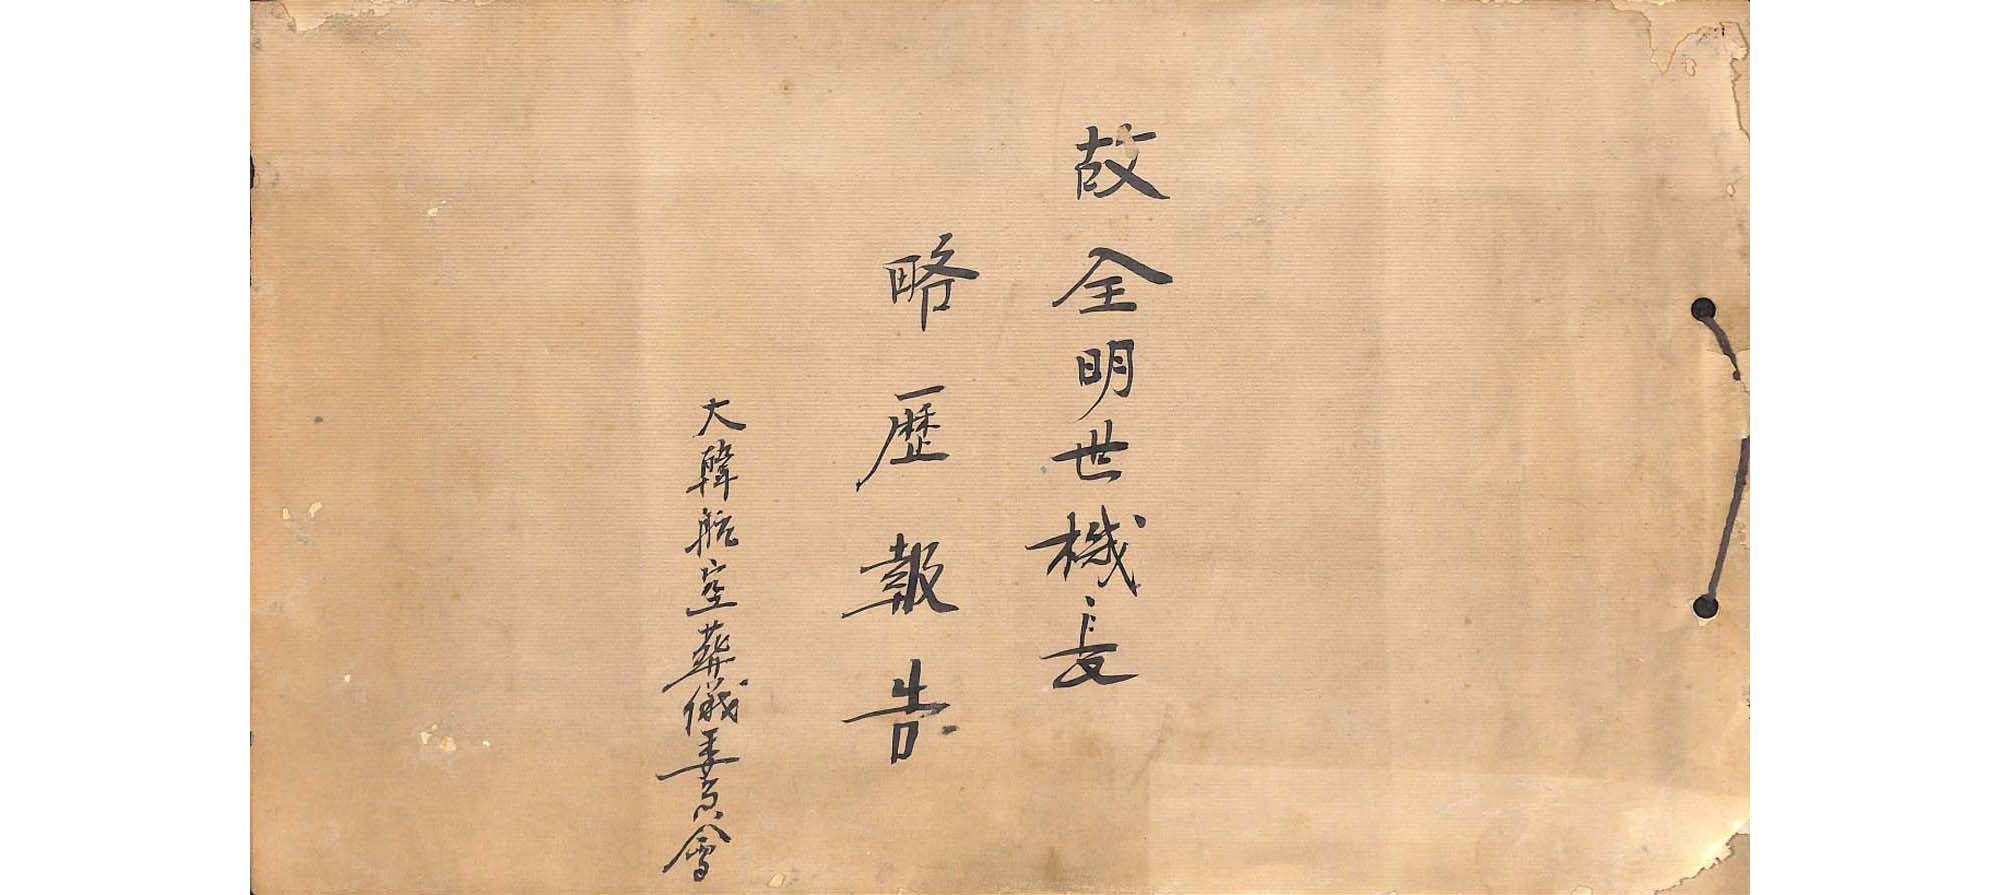 故全明世機長
略歷報告
大韓航空葬儀委員會